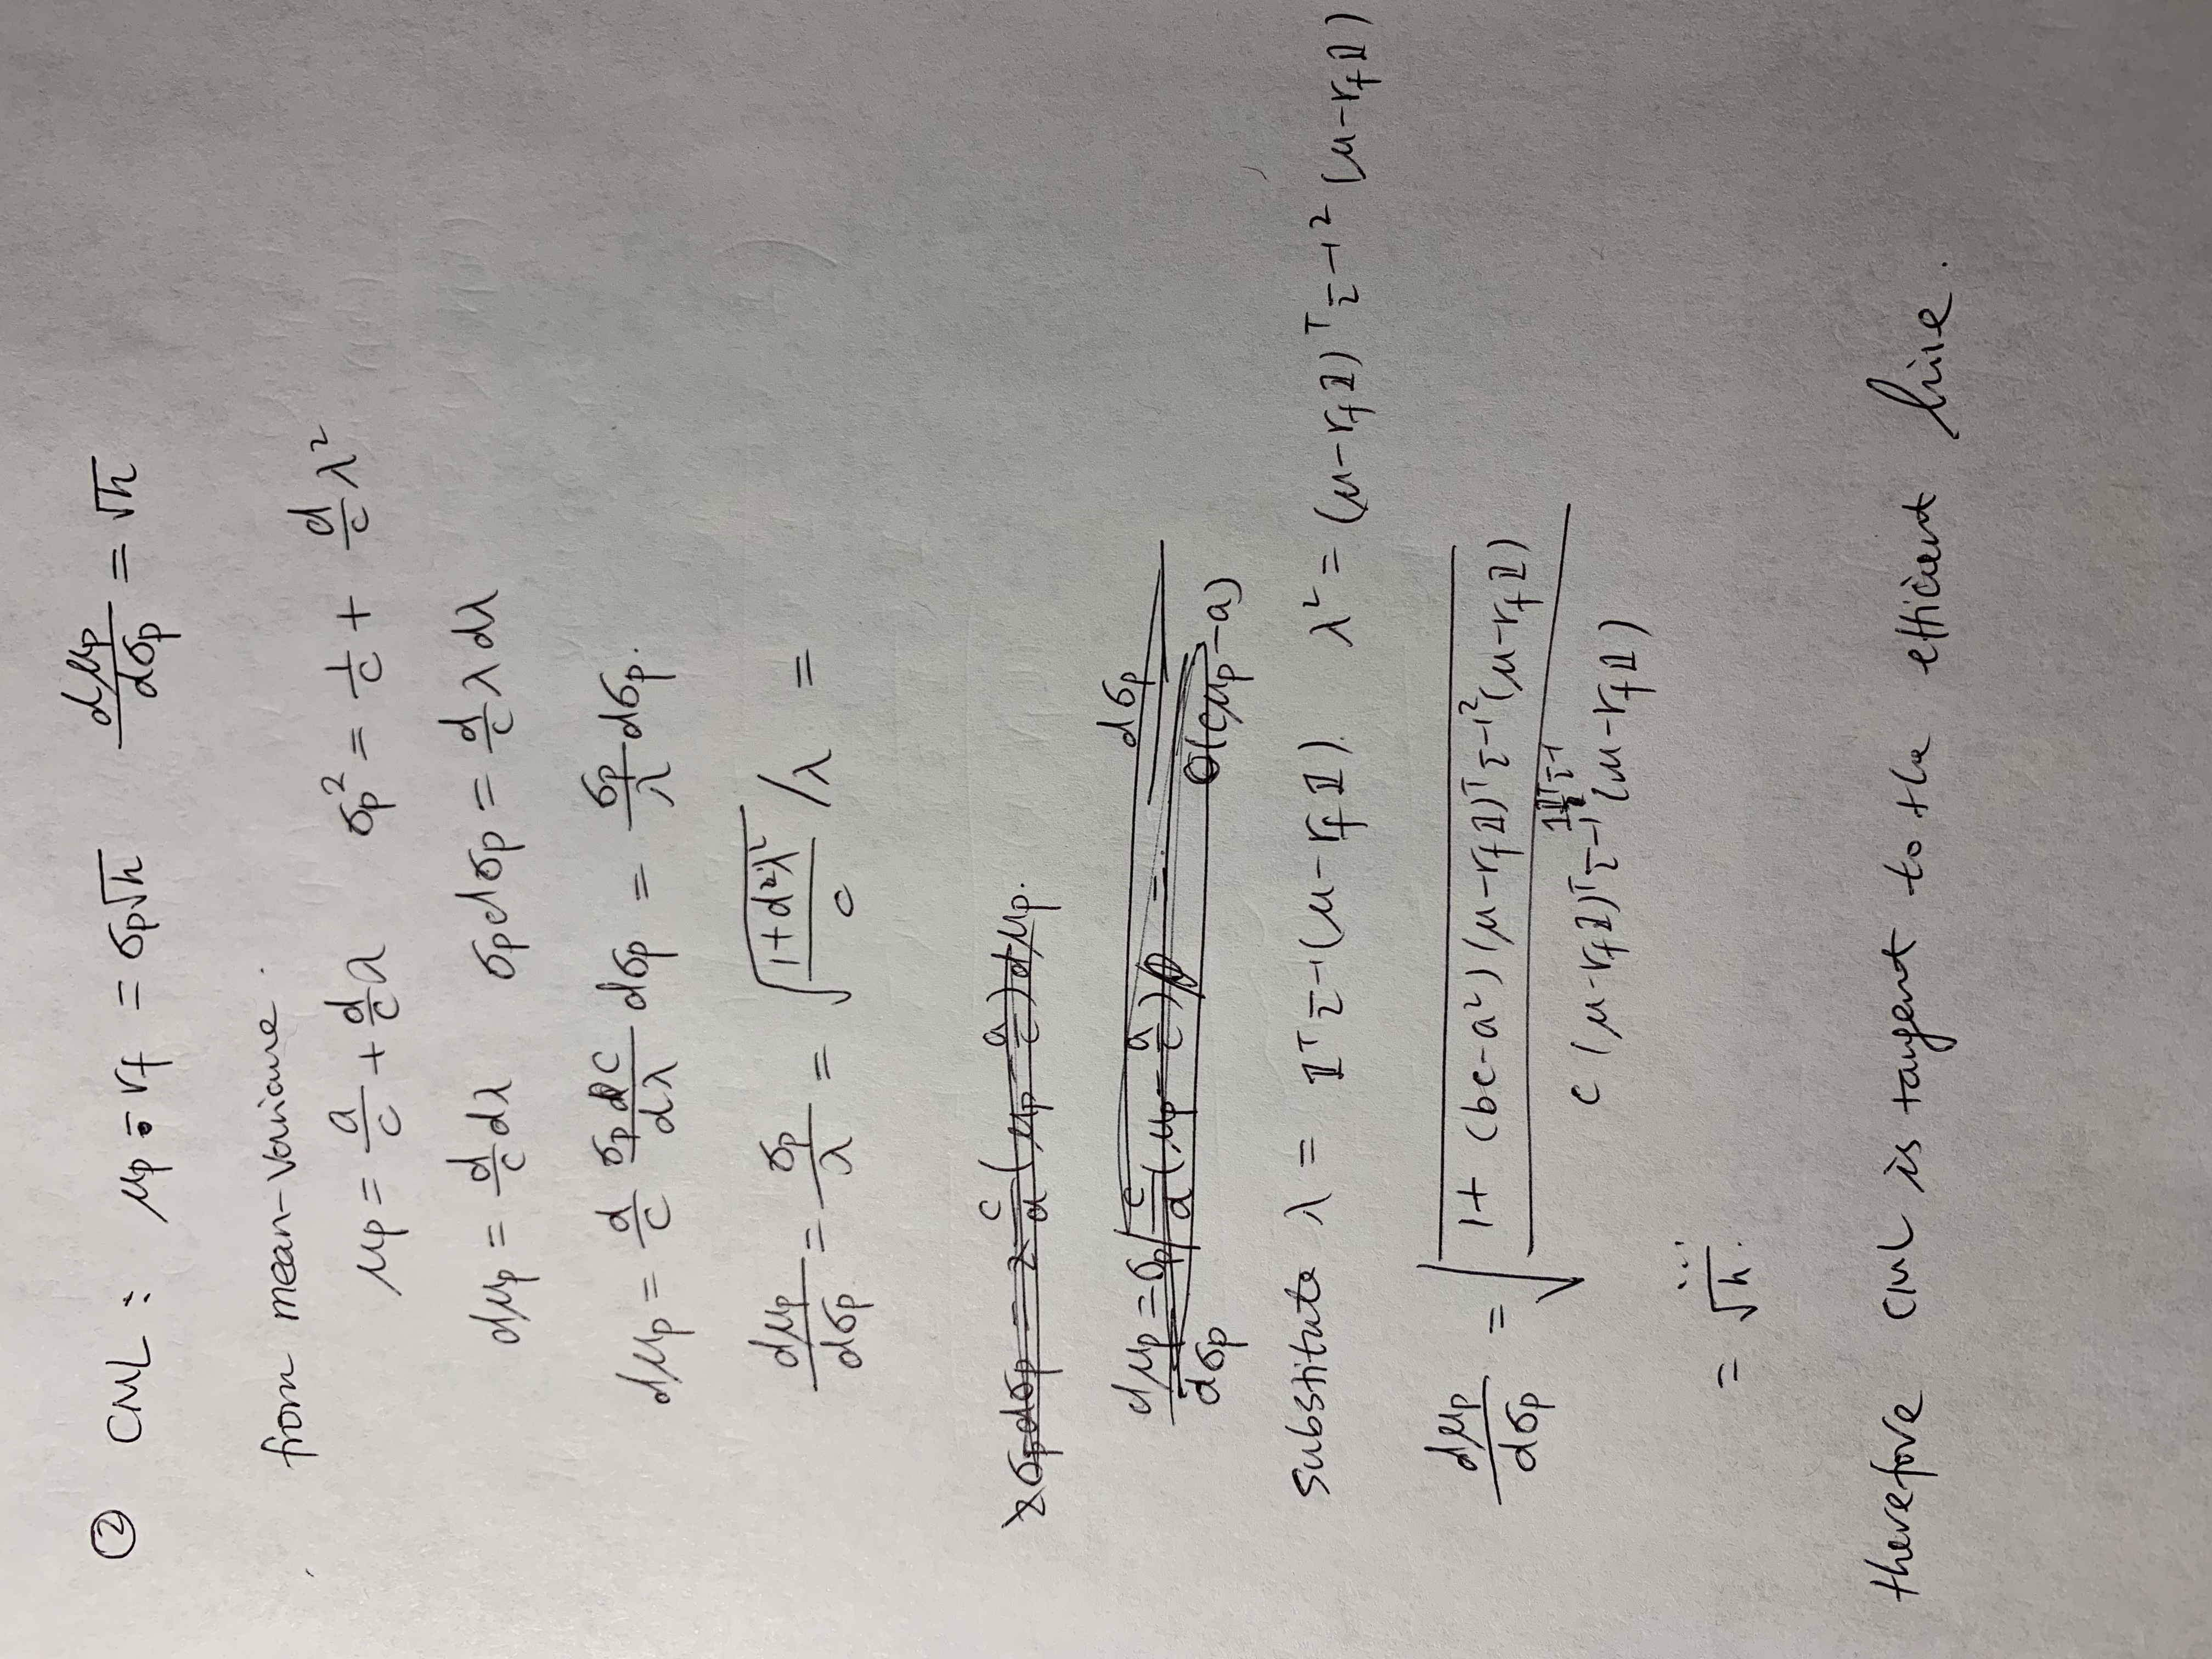 ② CML : μp - rf = σp√h dμp/dσp = √h
from mean-variance.
μp = a/c + d/c λ σp² = 1/c + d/c λ²
dμp = d/c dλ σp dσp = d/c λ dλ
dμp = d/c σp c/dλ dσp = σp/λ dσp.
dμp/dσp = σp/λ = √((1+d²λ²)/c) /λ =
2σp dσp = 2 c/d (μp - a/c) dμp.
dμp/dσp = σp / c/d (μp - a/c) = dσp/σ(cμp - a)
substitute λ = 𝟙ᵀΣ⁻¹(μ - rf𝟙). λ² = (μ - rf𝟙)ᵀ Σ⁻¹² (μ - rf𝟙)
dμp/dσp = √((1 + (bc - a²)(μ - rf𝟙)ᵀ Σ⁻¹² (μ - rf𝟙))/(c (μ - rf𝟙)ᵀ Σ⁻¹ 𝟙𝟙ᵀΣ⁻¹ (μ - rf𝟙)))
...
= √h.
therefore CML is tangent to the efficient line.